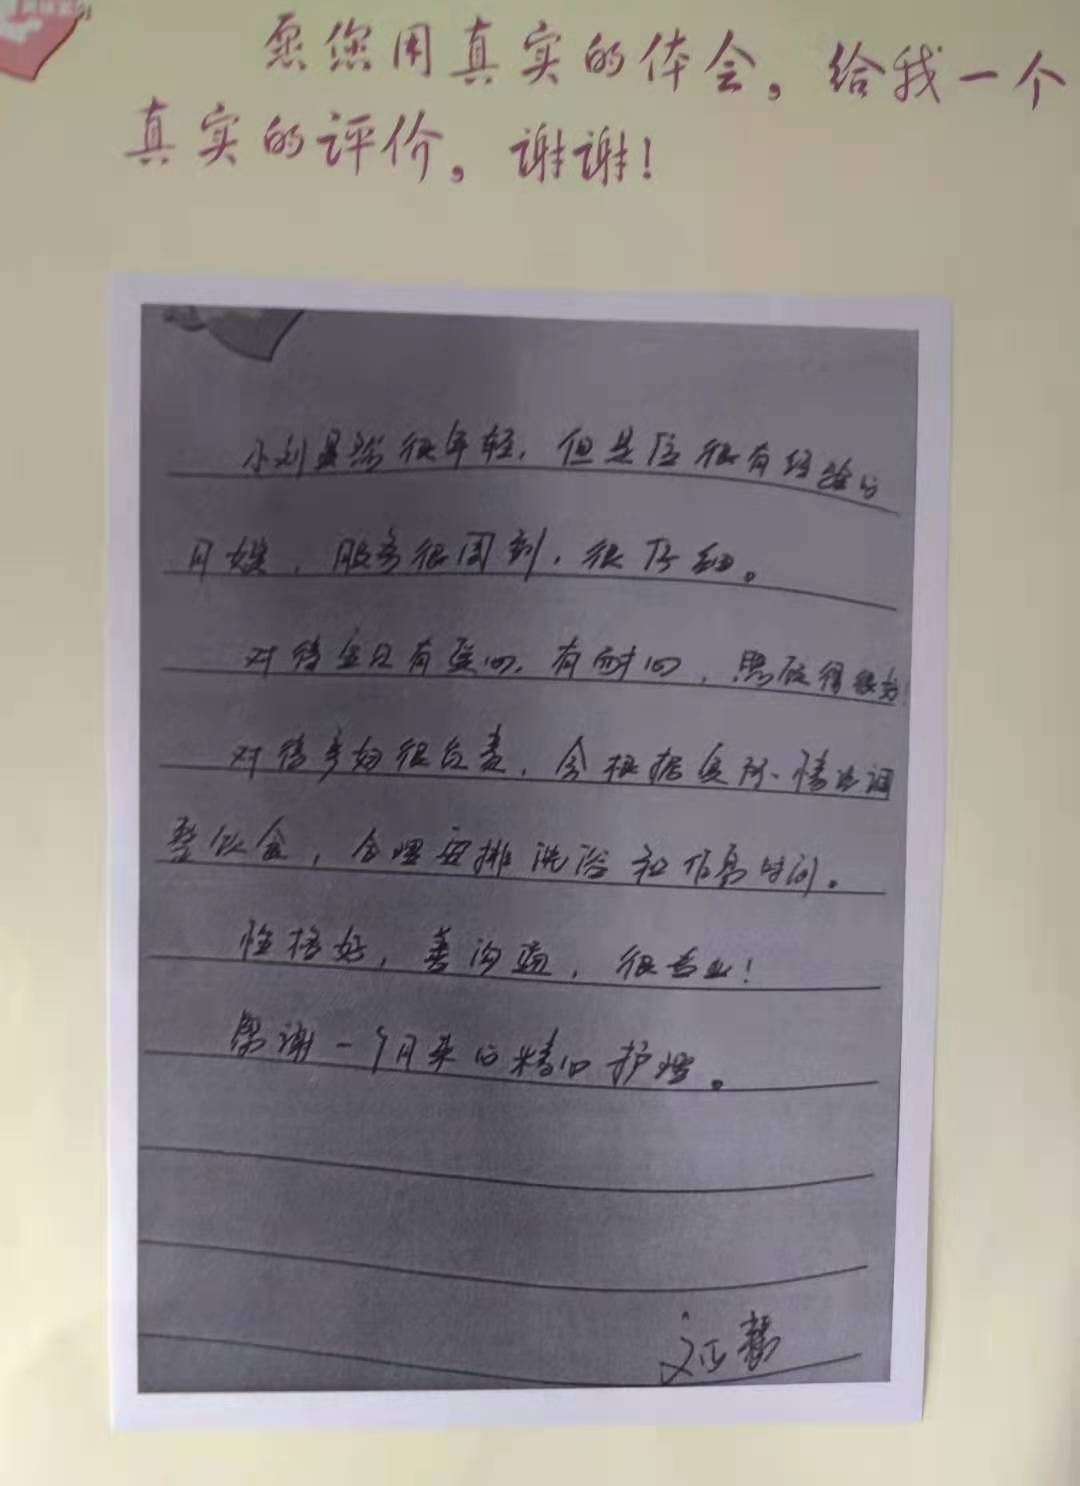 愿您用真实的体会，给我一个
真实的评价。谢谢！
小刘虽然很年轻，但是位很有经验的
月嫂，服务很周到，很仔细。
对待宝贝有爱心，有耐心，照顾得很好！
对待产妇很负责，会根据身体情况调
整饮食，合理安排洗浴和作息时间。
性格好，善沟通，很专业！
感谢一个月来的精心护理。